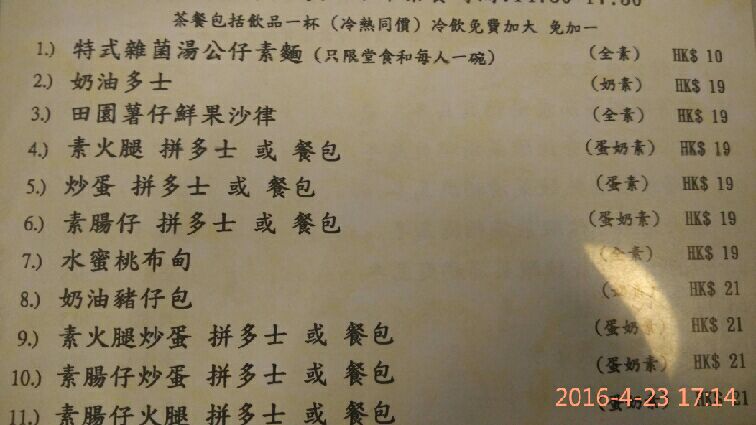 茶餐包括飲品一杯 (冷熱同價) 冷飲免費加大 免加一
1.) 特式雜菌湯公仔素麵 (只限堂食和每人一碗) (全素) HK$ 10
2.) 奶油多士 (奶素) HK$ 19
3.) 田園薯仔鮮果沙律 (全素) HK$ 19
4.) 素火腿 拼多士 或 餐包 (蛋奶素) HK$ 19
5.) 炒蛋 拼多士 或 餐包 (蛋素) HK$ 19
6.) 素腸仔 拼多士 或 餐包 (蛋奶素) HK$ 19
7.) 水蜜桃布甸 (全素) HK$ 19
8.) 奶油豬仔包 HK$ 21
9.) 素火腿炒蛋 拼多士 或 餐包 (蛋奶素) HK$ 21
10.) 素腸仔炒蛋 拼多士 或 餐包 (蛋奶素) HK$ 21
11.) 素腸仔火腿 拼多士 或 餐包 (蛋奶素) 21
2016-4-23 17:14